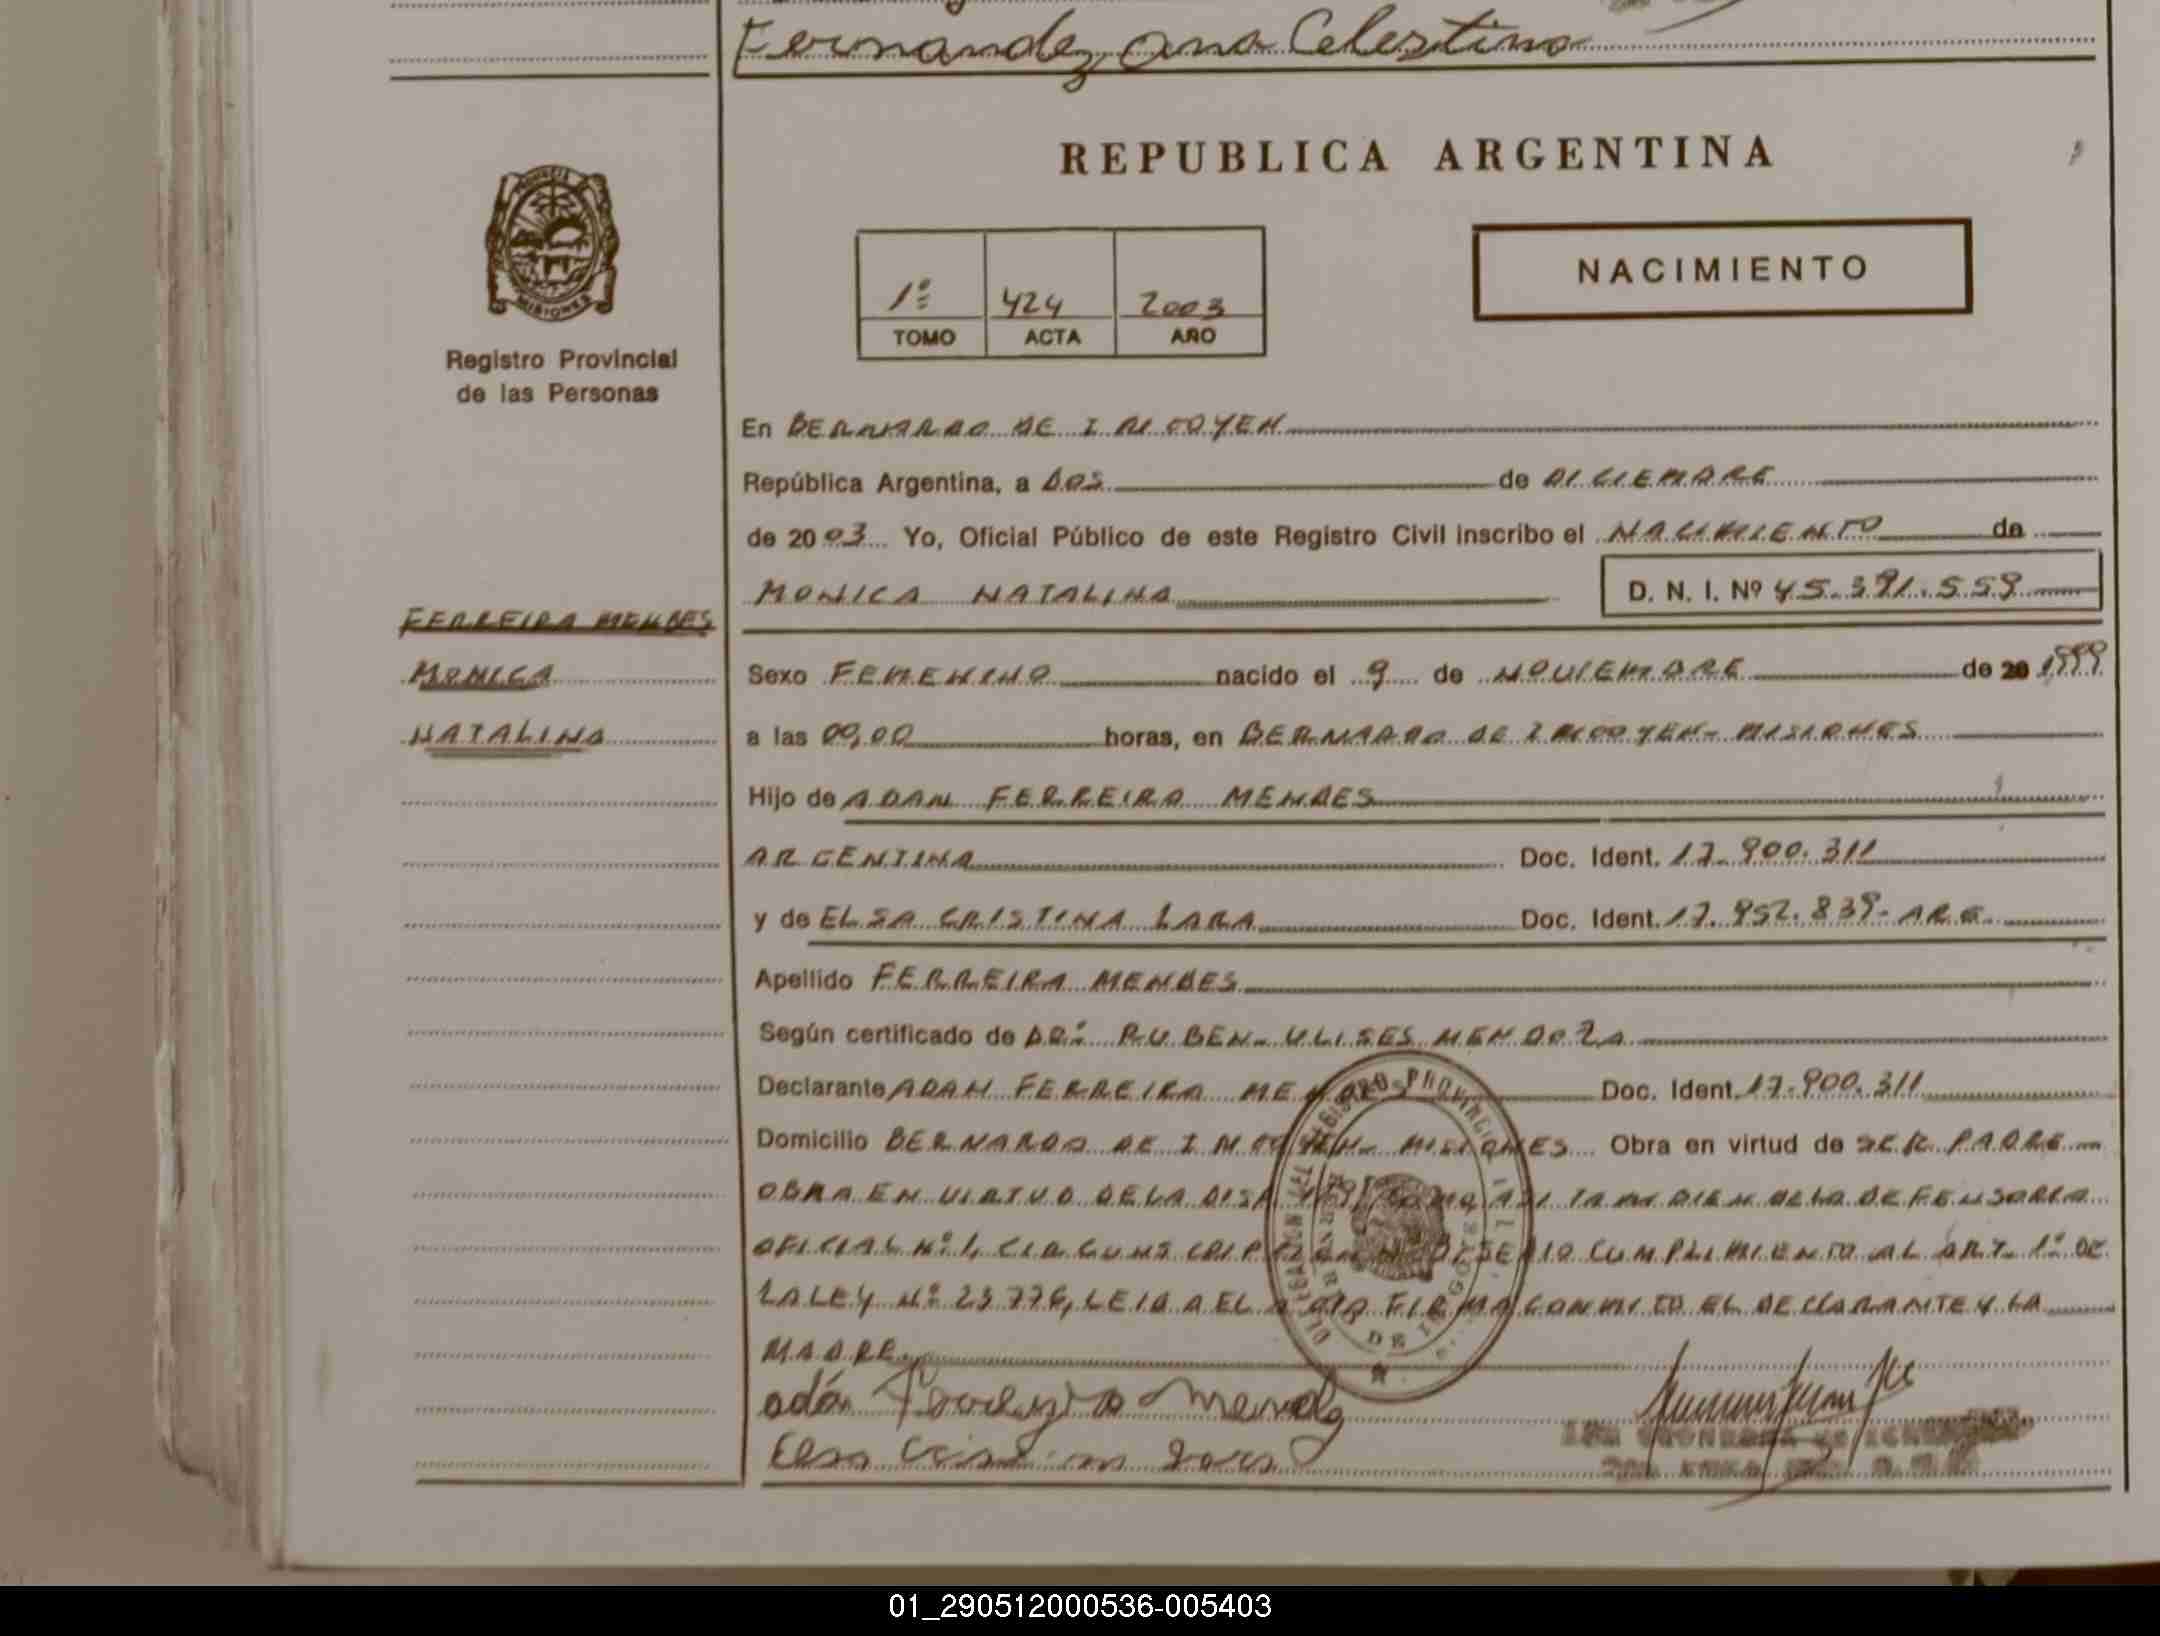 Fernandez, Ana Celestina
REPUBLICA ARGENTINA
PROVINCIA DE
MISIONES
NACIMIENTO
1º 424 2003
TOMO ACTA AÑO
Registro Provincial
de las Personas
En BERNARDO DE IRIGOYEN
República Argentina, a DOS de DICIEMBRE
de 2003 Yo, Oficial Público de este Registro Civil inscribo el NACIMIENTO de
MONICA NATALINA D. N. I. Nº 45.391.559
FERREIRA MENDES
MONICA
NATALINA
Sexo FEMENINO nacido el 9 de NOVIEMBRE de 20 1999
a las 00,00 horas, en BERNARDO DE IRIGOYEN- MISIONES
Hijo de ADAN FERREIRA MENDES
ARGENTINA Doc. Ident. 17.900.311
y de ELSA CRISTINA LARA Doc. Ident. 17.952.839- ARG.
Apellido FERREIRA MENDES
Según certificado de DR: RUBEN- ULISES MENDOZA
Declarante ADAN FERREIRA MENDES Doc. Ident. 17.900.311
Domicilio BERNARDO DE IRIGOYEN- MISIONES Obra en virtud de SER PADRE
OBRA EN VIRTUD DE LA DISP. COMO ASI TAMBIEN DE LA DEFENSORIA
OFICIAL Nº 1, CIRCUNSCRIPCION DESE CUMPLIMIENTO AL ART. 1º DE
LA LEY Nº 23776, LEIDA EL ACTA FIRMA CONMIGO EL DECLARANTE Y LA
MADRE.
adán Ferreyra Mendes
Elsa Cristina Lara
REGISTRO PROVINCIAL
DE
01_290512000536-005403